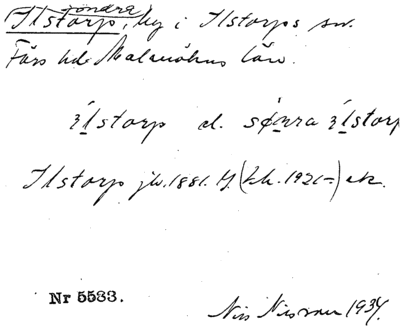 södra
Ilstorp. by i Ilstorps sn.
Färs hd. Malmöhus län.
ílstorp el. sønra ílstorp
Ilstorp jb. 1881. Y (kk. 1921=) ek.
Nr 5533.
Nils Nilsson 1934.